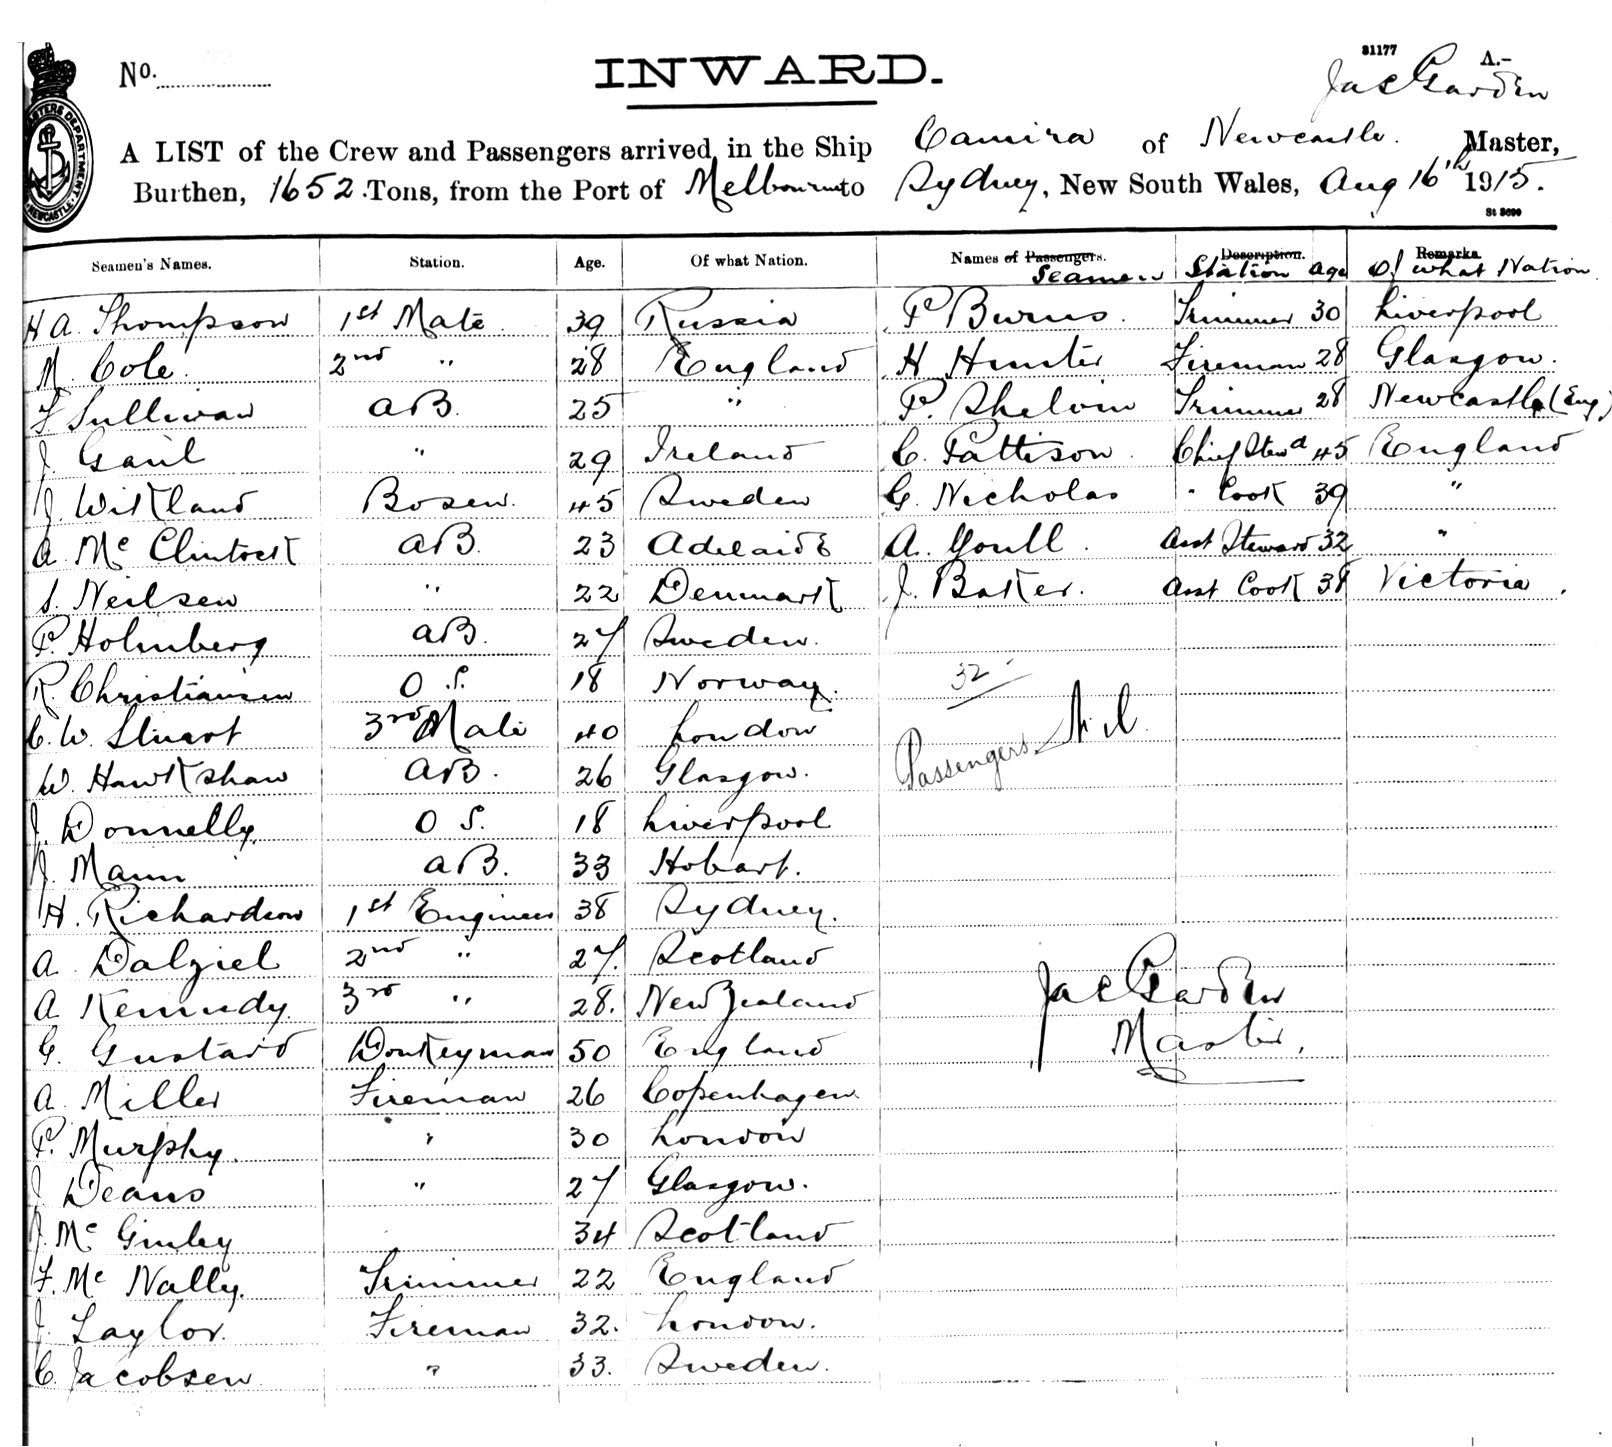 31177 A.-
No. INWARD. Jas Garden
A LIST of the Crew and Passengers arrived in the Ship Camira of Newcastle. Master,
Burthen, 1652 Tons, from the Port of Melbourne to Sydney, New South Wales, Aug 16th 1915.
St 3600
Seamen's Names. Station. Age. Of what Nation. Names of Passengers. Description. Remarks.
Seamen Station age Of what Nation
H A. Thompson 1st Mate 39 Russia P Burns. Trimmer 30 Liverpool
M. Cole. 2nd " 28 England H Hunter Fireman 28 Glasgow.
F Sullivan AB. 25 " P. Shelvin Trimmer 28 Newcastle (Eng)
J. Gaul " 29 Ireland C. Pattison. Chief Stewd 45 England
J. Wikland Bosen. 45 Sweden G. Nicholas " Cook 39 "
A. Mc Clintock AB. 23 Adelaide A. Youll. Asst Steward 32 "
S. Neilsen " 22 Denmark J. Baker. Asst Cook 38 Victoria.
P. Holmberg AB. 27 Sweden.
R. Christiansen O.S. 18 Norway. 32
C. W. Stuart 3rd Mate 40 London
Passengers Nil.
W. Hawkshaw AB. 26 Glasgow.
J. Donnelly. O S. 18 Liverpool
J. Mann AB. 33 Hobart.
H. Richardson 1st Engineer 38 Sydney.
A. Dalziel 2nd " 27. Scotland
A Kennedy. 3rd " 28. New Zealand Jas Garden
G. Gustard Donkeyman 50 England Master.
A. Miller Fireman 26 Copenhagen.
P. Murphy. " 30 London
J Deans " 27 Glasgow.
J. Mc Ginley 34 Scotland
F. Mc Nally. Trimmer 22 England
J. Taylor. Fireman 32. London.
C. Jacobsen " 33. Sweden.